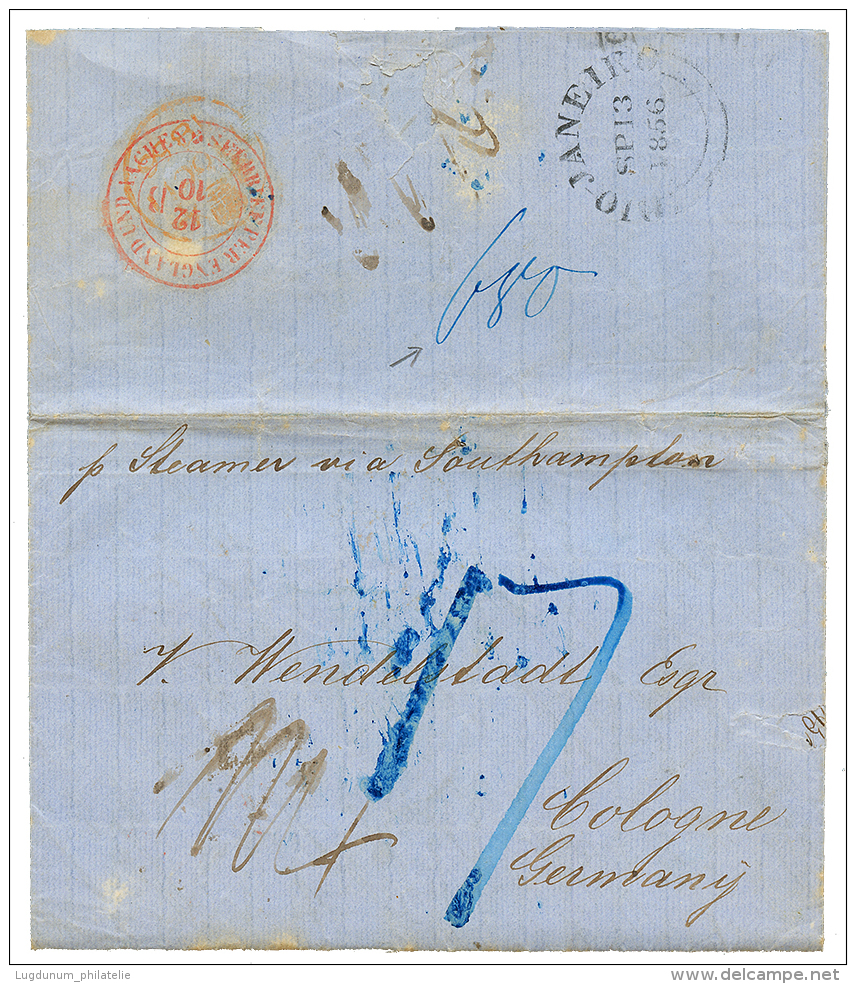 RIO-JANEIRO
SP13
1856
SEEBRIEF PER ENGLAND UND AACHEN
12 10
680
p Steamer via Southampton
17
V. Wendelstadt Esqr
Cologne
Germany
Lugdunum_philatelie
delcampe.net